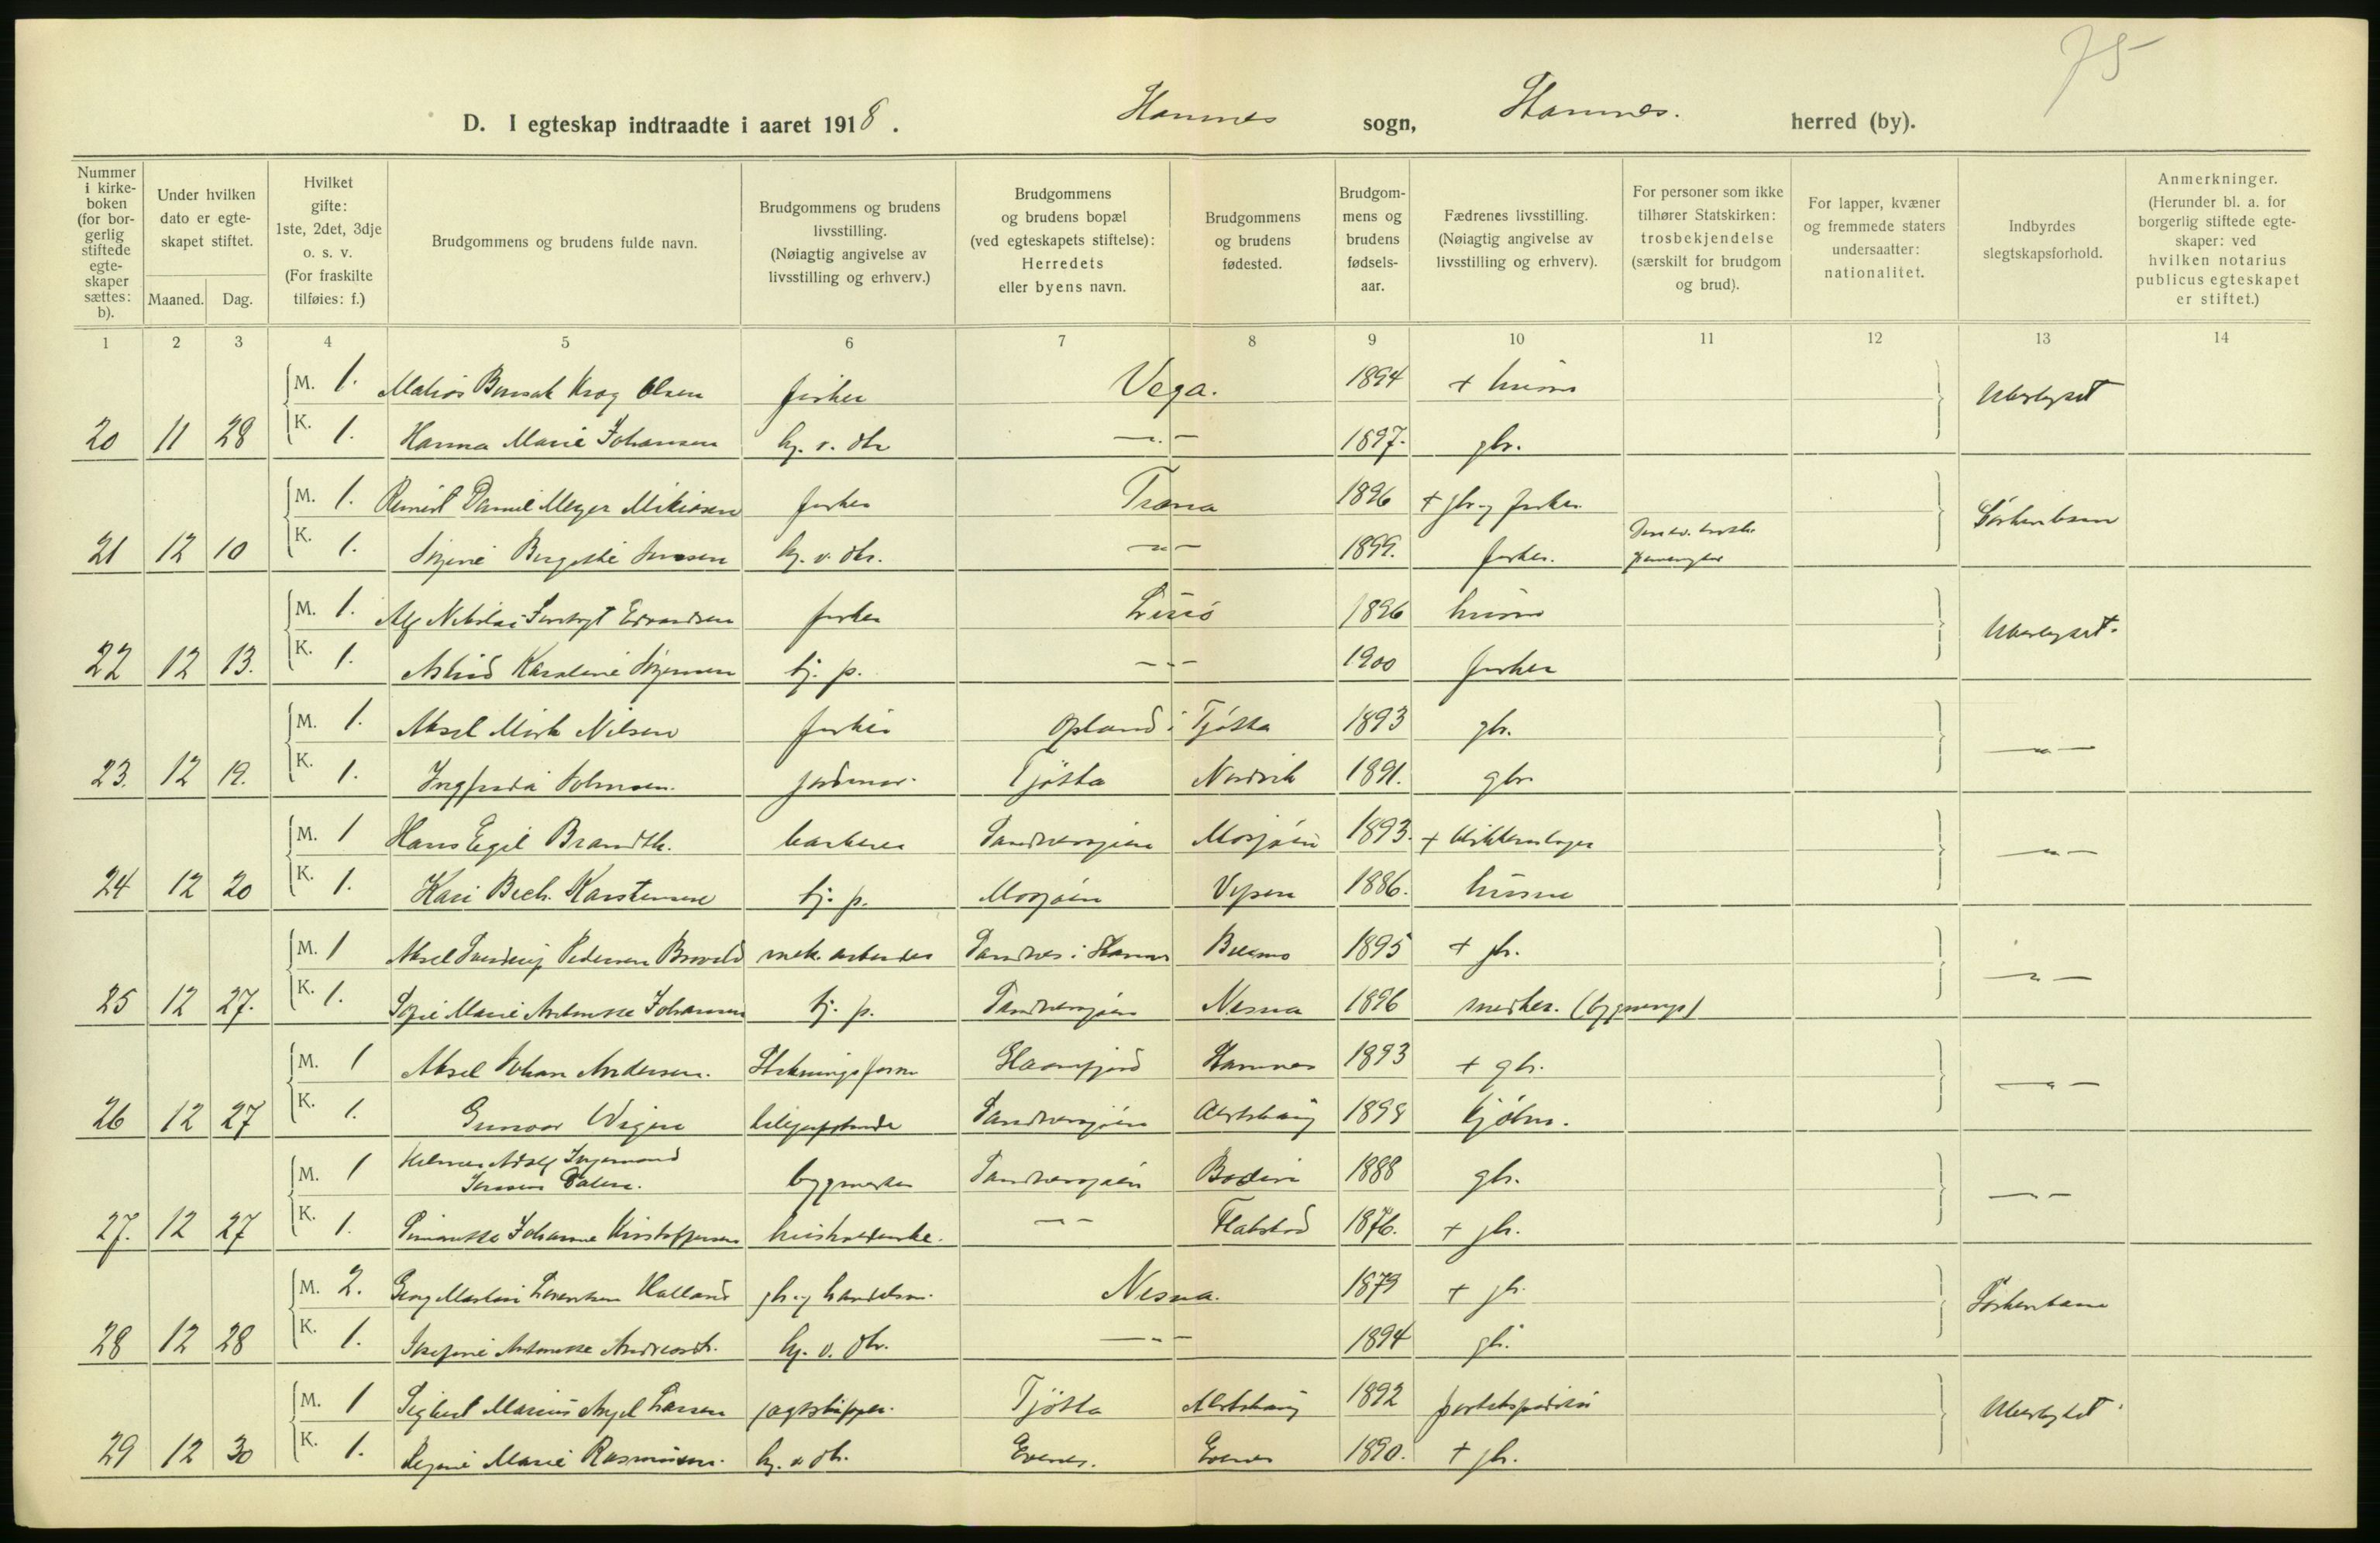 75
D. I egteskap indtraadte i aaret 1918. Stamnes sogn, Stamnes. herred (by).
Nummer i kirkeboken (for borgerlig stiftede egteskaper sættes: b).
Under hvilken dato er egteskapet stiftet.
Maaned. Dag.
Hvilket gifte: 1ste, 2det, 3dje o. s. v. (For fraskilte tilføies: f.)
Brudgommens og brudens fulde navn.
Brudgommens og brudens livsstilling. (Nøiagtig angivelse av livsstilling og erhverv.)
Brudgommens og brudens bopæl (ved egteskapets stiftelse): Herredets eller byens navn.
Brudgommens og brudens fødested.
Brudgommens og brudens fødselsaar.
Fædrenes livsstilling. (Nøiagtig angivelse av livsstilling og erhverv).
For personer som ikke tilhører Statskirken: trosbekjendelse (særskilt for brudgom og brud).
For lapper, kvæner og fremmede staters undersaatter: nationalitet.
Indbyrdes slegtskapsforhold.
Anmerkninger. (Herunder bl. a. for borgerlig stiftede egteskaper: ved hvilken notarius publicus egteskapet er stiftet.)
1 2 3 4 5 6 7 8 9 10 11 12 13 14
M. 1. Matias Krog Olsen fisker Vega. 1894 + husm Ubeslegtet
20 11 28 K. 1. Hanna Marie Johansen hj. v. dtr — 1897. gbr.
M. 1. Daniel Meyer fisker Træna 1896 + gbr og fisker Søskenbarn
21 12 10 K. 1. Jensen hj. v. dtr. — 1899. fisker.
M. 1. Alf Nikolai Edvardsen fisker Lurø 1896 husm Ubeslegtet.
22 12 13. K. 1. Astrid Karoline tj. p. — 1900 fisker
M. 1. Aksel Nilsen fisker Opland i Tjøtta 1893 gbr.
23. 12 19. K. 1. Ingfrida Johnsen. jordmor. Tjøtta Nordvik 1891. gbr — " —
M. 1 Hans Egil Brandth. barberer Sandnessjøen Mosjøen 1893. + blikkenslager
24 12 20 K. 1. Kari Bech. Karstensen tj. p. Mosjøen Vefsn 1886. husm — " —
M. 1 Aksel Sverdrup Pedersen mek. arbeider Sandnes i Stamnes 1895 + gbr.
25 12 27. K. 1. Sofie Marie Johansen tj. p. Sandnessjøen Nesna 1896 snedker. (bygnings) — " —
M. 1 Aksel Johan Andersen. Stamnes 1893 + gbr.
26 12 27 K. 1. Gunvor Wigen Sandnessjøen Alstahaug 1898 kjøbm. — " —
M. 1 Hilmar Adolf Ingemand Jensen bygmester Sandnessjøen Bodin 1888 gbr.
27. 12 27 K. 1. Johanne Kristoffersen husholderske. — " — Flakstad 1876. + gbr. — " —
M. 2. Georg Lorentsen gbr og handelsm. Nesna. 1879 + gbr. Søskenbarn
28 12 28 K. 1. Josefine Antonette hj. v. dtr. — " — 1894 gbr.
M. 1 Sigbert Marius Larsen jagtskipper. Tjøtta Alstahaug 1892 Ubeslegtet.
29 12 30 K. 1. Marie Rasmussen. hj. v. dtr. Evenes. Evenes 1890. + gbr.